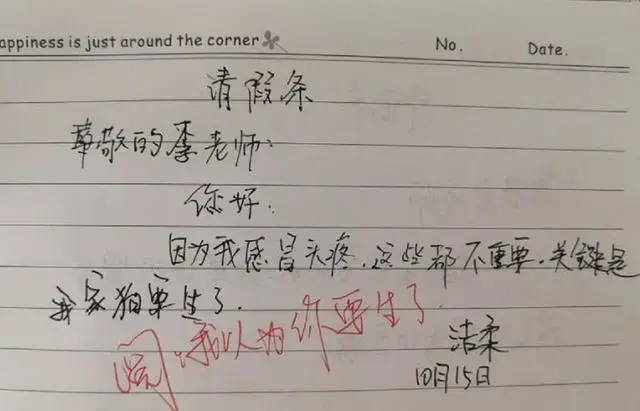 appiness is just around the corner No. Date.
请假条
尊敬的李老师：
你好：
因为我感冒头疼，这些都不重要，关键是
我家狗要生了．
阅，我以为你要生了
洁柔
10月15日